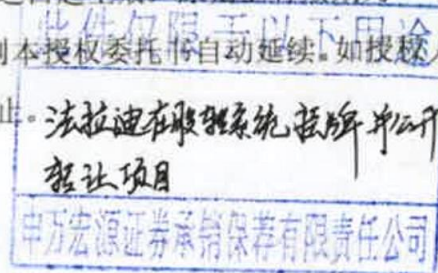 此件仅限于以下用途
则本授权委托书自动延续。如授权人
止。
法拉迪在股转系统挂牌并公开
转让项目
申万宏源证券承销保荐有限责任公司